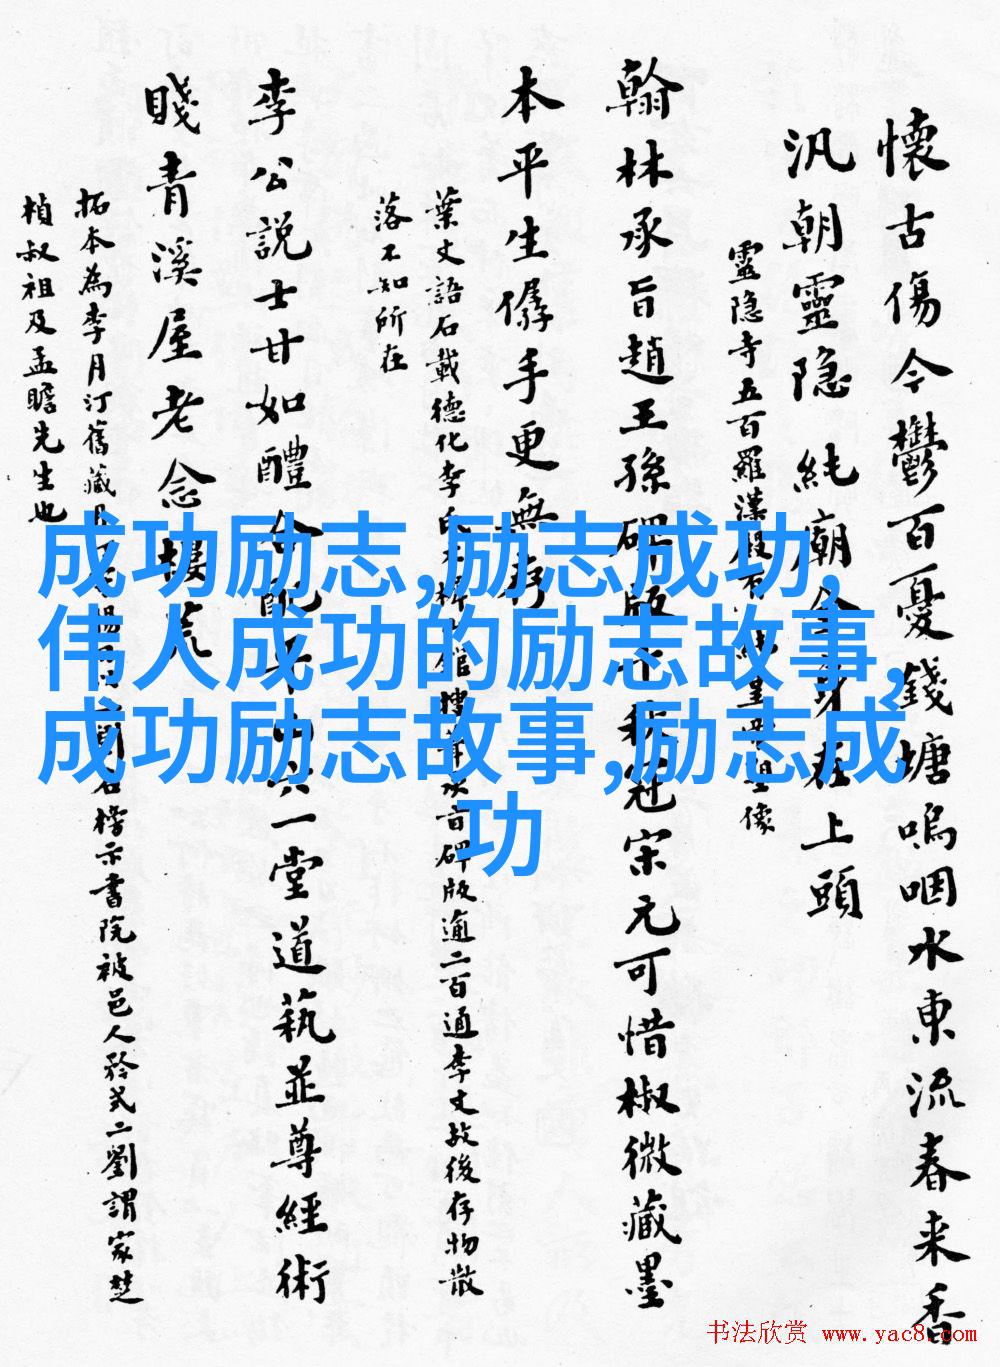 懷古傷今鬱百憂錢塘嗚咽水東流春来香
汎朝靈隐純廟金身在上頭
靈隐寺五百羅漢殿
像
翰林承旨趙王孫碑版
冠宋元可惜椒微藏墨
本平生儔手更無存
葉文語石載德化李氏
碑版逾二百通李文故後存物散
落不知所在
李公說士甘如醴
一堂道藝並尊經術
賤青溪屋老念樓荒
拓本為李月汀舊藏
榜示書院被邑人矜式二劉謂家楚
楨叔祖及孟瞻先生也
成功励志,励志成功,
伟人成功的励志故事,
成功励志故事,励志成
功
书法欣赏 www.yac8.com